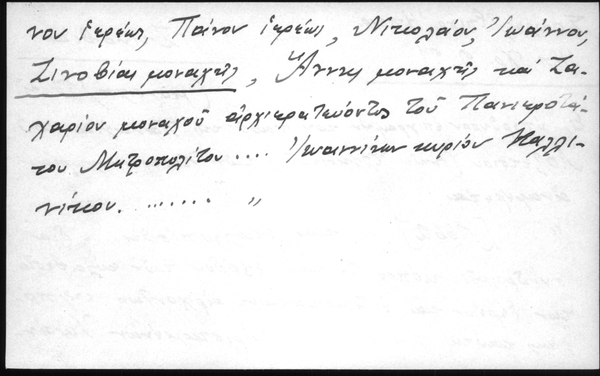 νου ἱερέως, Πάνου ἱερέως, Νικολάου, Ἰωάννου,
Ζινοβίας μοναχῆς, Ἄννης μοναχῆς καὶ Ζα-
χαρίου μοναχοῦ ἀρχιερατεύοντος τοῦ Πανιερωτά-
του Μητροπολίτου .... Ἰωαννίνων κυρίου Καλλι-
νίκου. ....... "